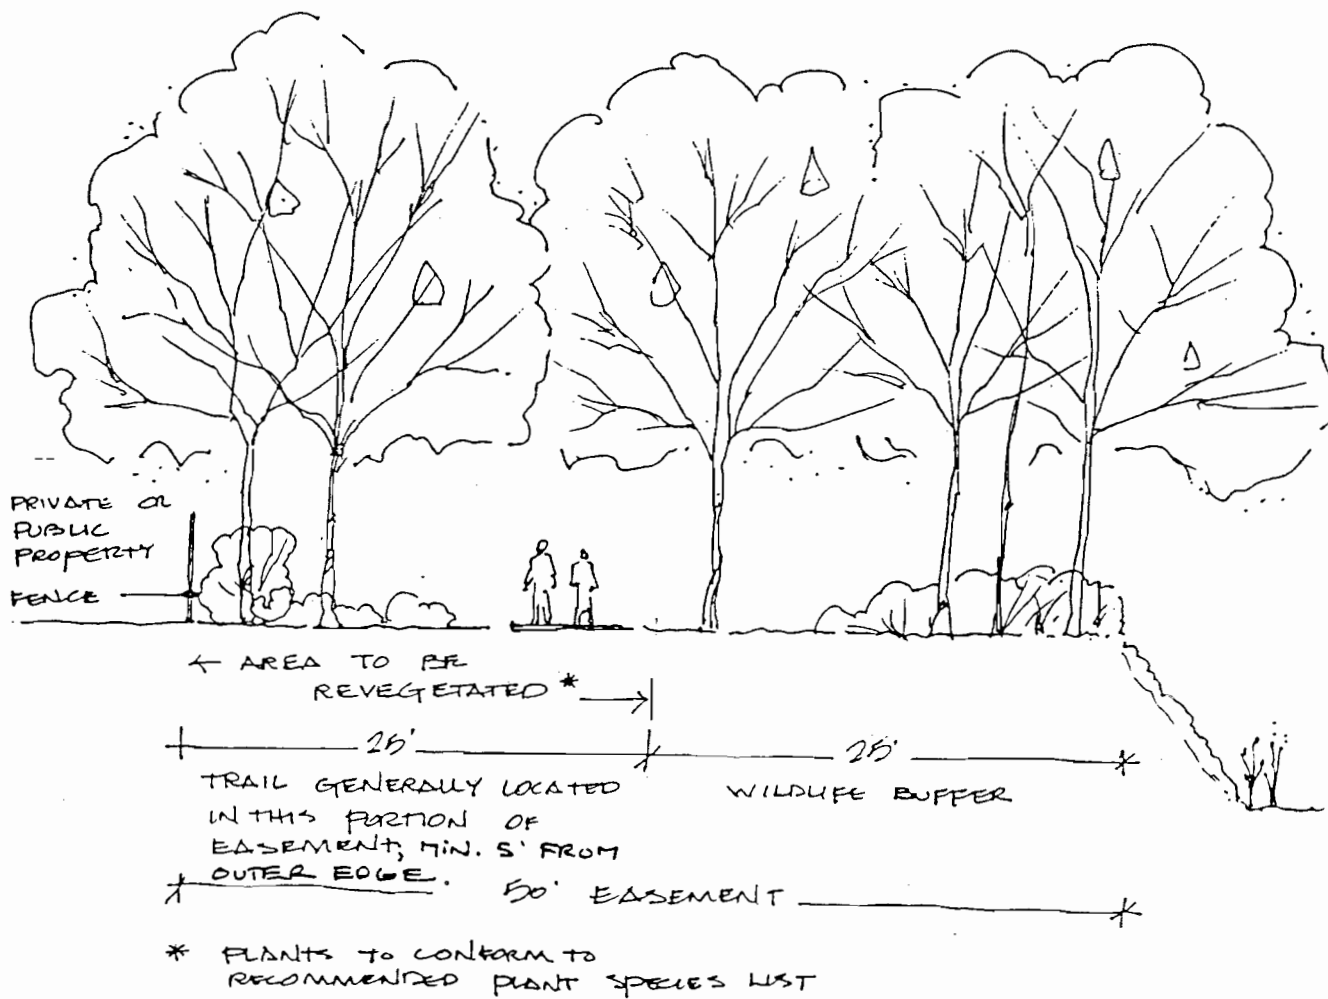 PRIVATE OR
PUBLIC
PROPERTY
FENCE
← AREA TO BE
REVEGETATED * →
25'
25'
TRAIL GENERALLY LOCATED
IN THIS PORTION OF
EASEMENT, MIN. 5' FROM
OUTER EDGE.
WILDLIFE BUFFER
50' EASEMENT
* PLANTS TO CONFORM TO
RECOMMENDED PLANT SPECIES LIST